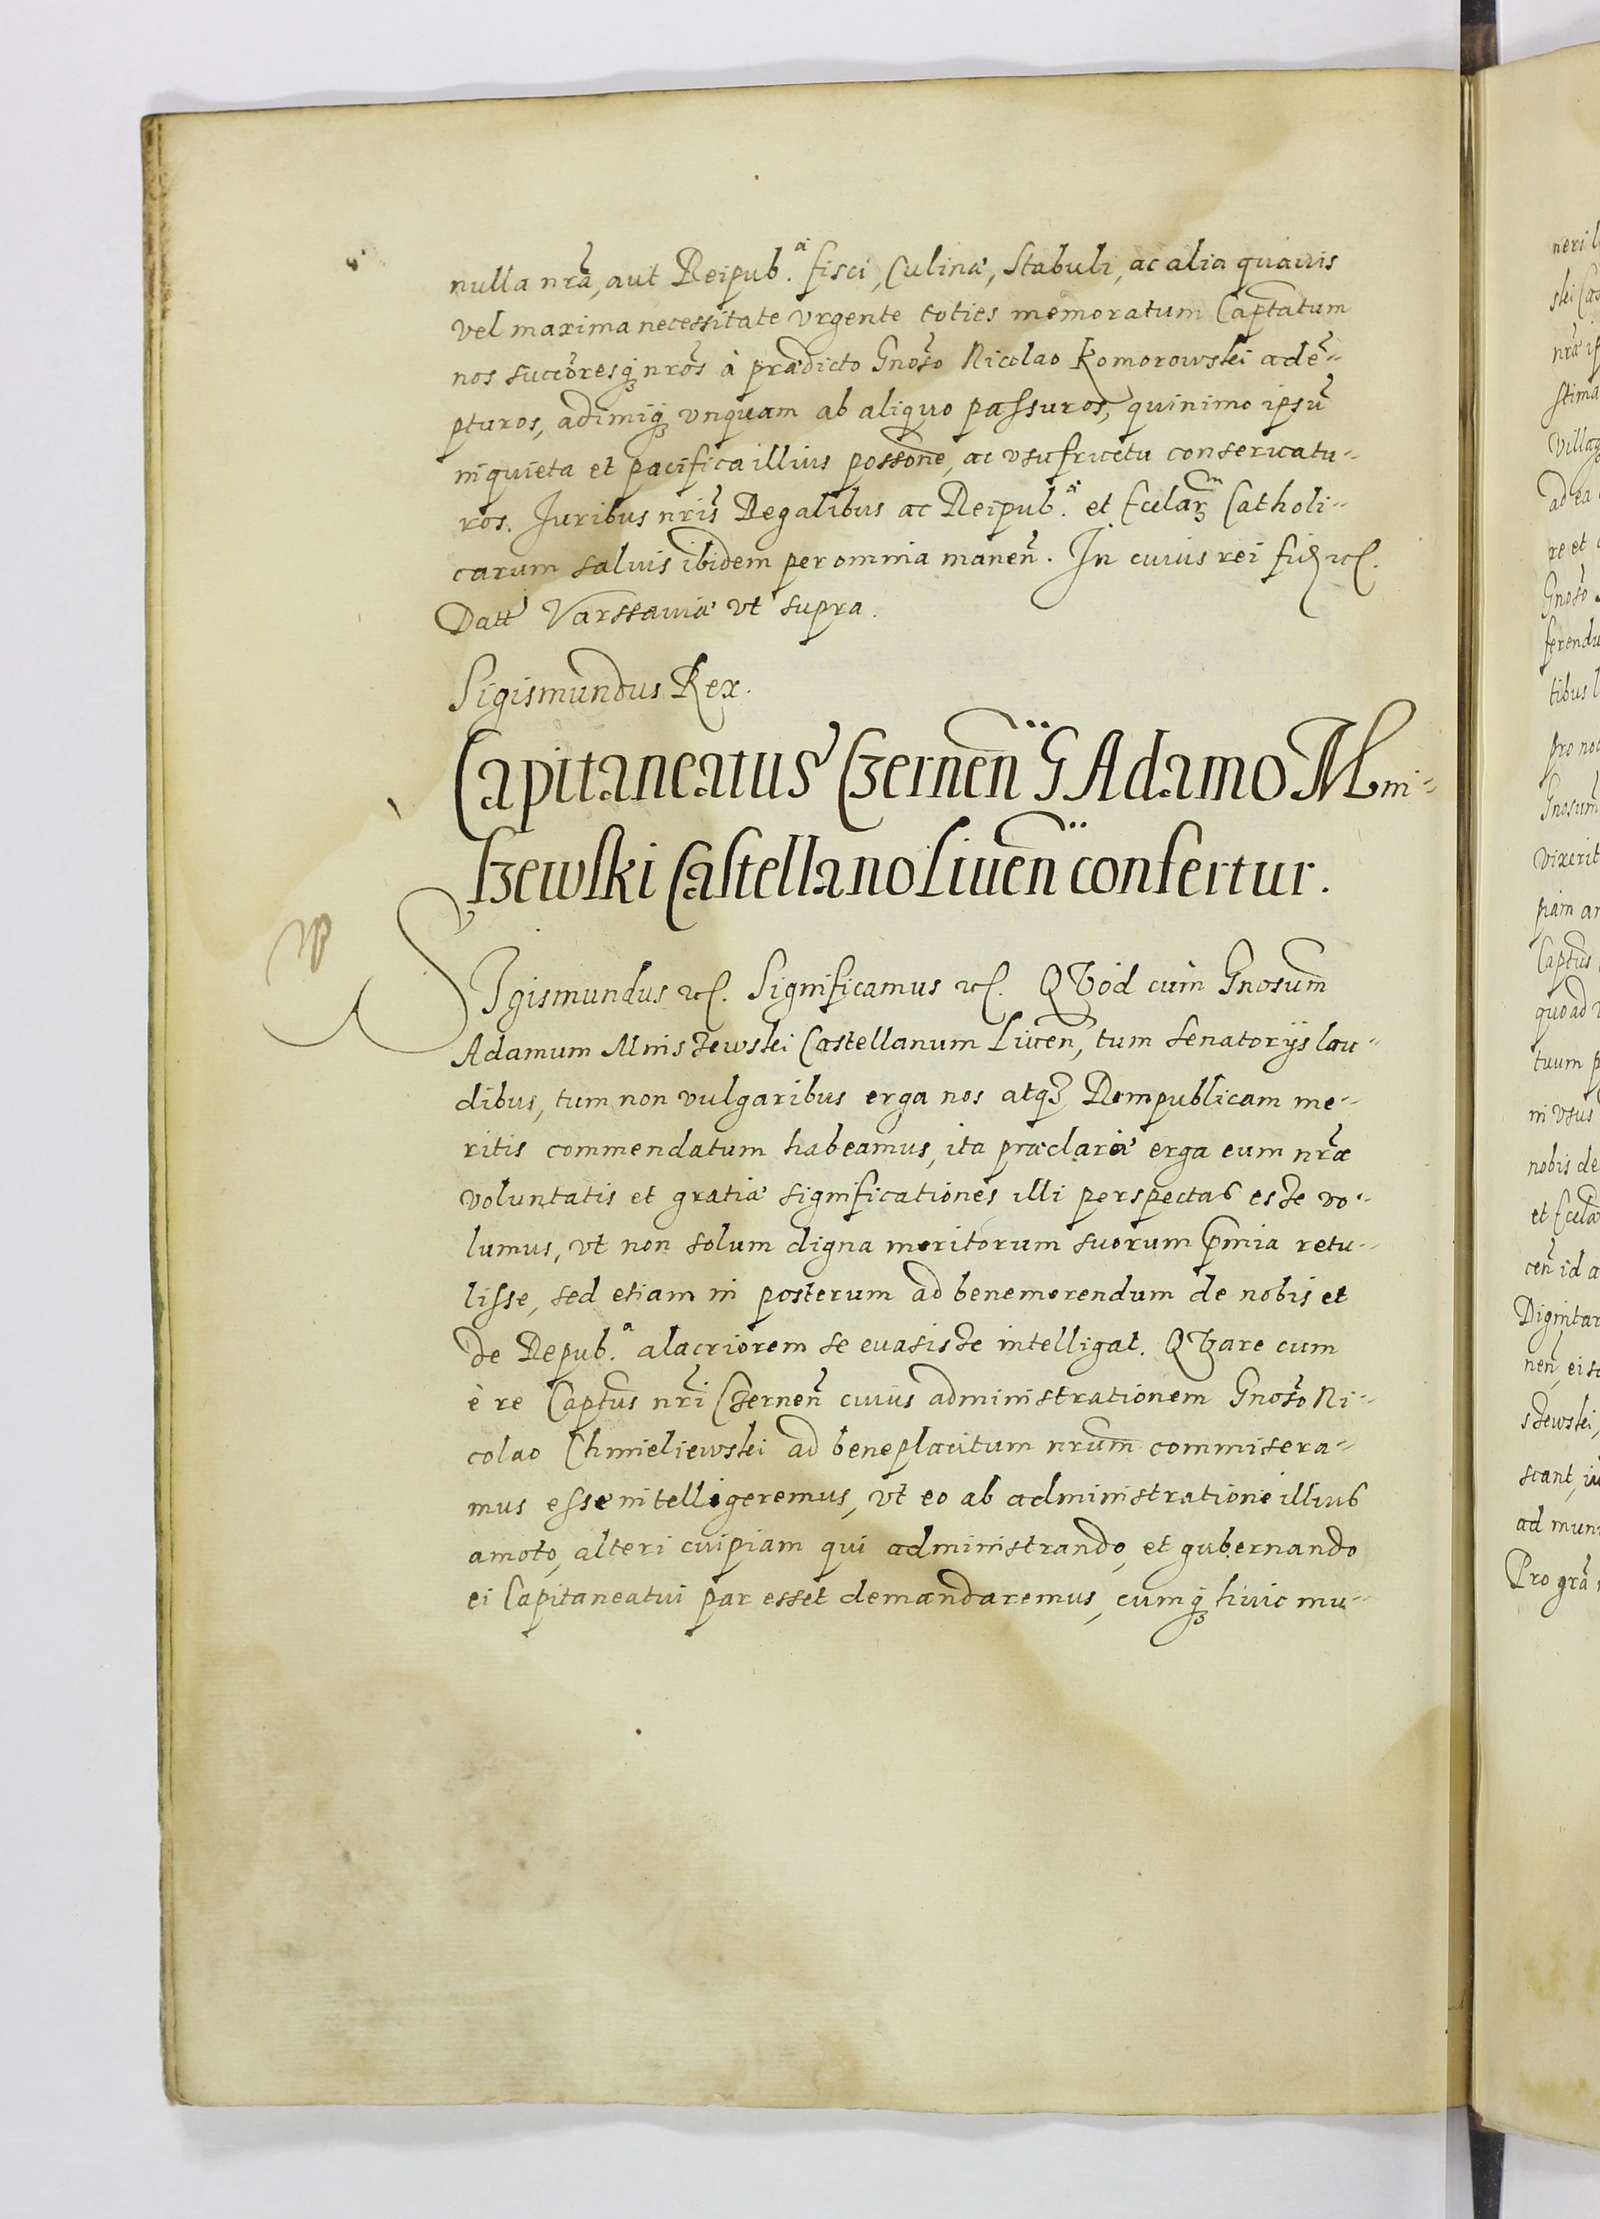 nulla nrã, aut Reipub.ᵃᵉ fisci, Culinæ, Stabuli, ac alia quauis
vel maxima necessitate vrgente toties memoratum Captatum
nos succõresq nrõs à prædicto Gnoso Nicolao Komorowski adẽ-
pturos, adimiq vnquam ab aliquo passuros, quinimo ipsũ
in quieta et pacifica illius possõne, ac vsufructu conseruatu-
ros. Juribus nris̃ Regalibus ac Reipub.ᵃᵉ et Ecclar Catholi-
carum saluis ibidem per omnia maneñ. In cuius rei fid etc.
Datt Varssauiæ vt supra.
Sigismundus Rex.
Capitaneatus Czerneñ G Adamo Mni-
szewski Castellano Liueñ confertur.
SIgismundus etc. Significamus etc. QVod cùm Gnosum
Adamum Mniszewski Castellanum Liuceñ, tum senatorijs lau-
dibus, tum non vulgaribus erga nos atq Rempublicam me-
ritis commendatum habeamus, ita præclaræ erga eum nrãe
voluntatis et gratiæ significationes illi perspectas esse vo-
lumus, vt non solum digna meritorum suorum pmia retu-
lisse, sed etiam in posterum ad benemerendum de nobis et
de Repub.ᵃ alacriorem se euasisse intelligat. QVare cum
è re Captus nri Czerneñ cuius administrationem Gnoso Ni-
colao Chmieliewski ad beneplacitum nrum commisera-
mus esse intelligeremus, vt eo ab administratione illius
amoto, alteri cuipiam qui administrando, et gubernando
ei Capitaneatui par esset demandaremus, cumq huic mu-